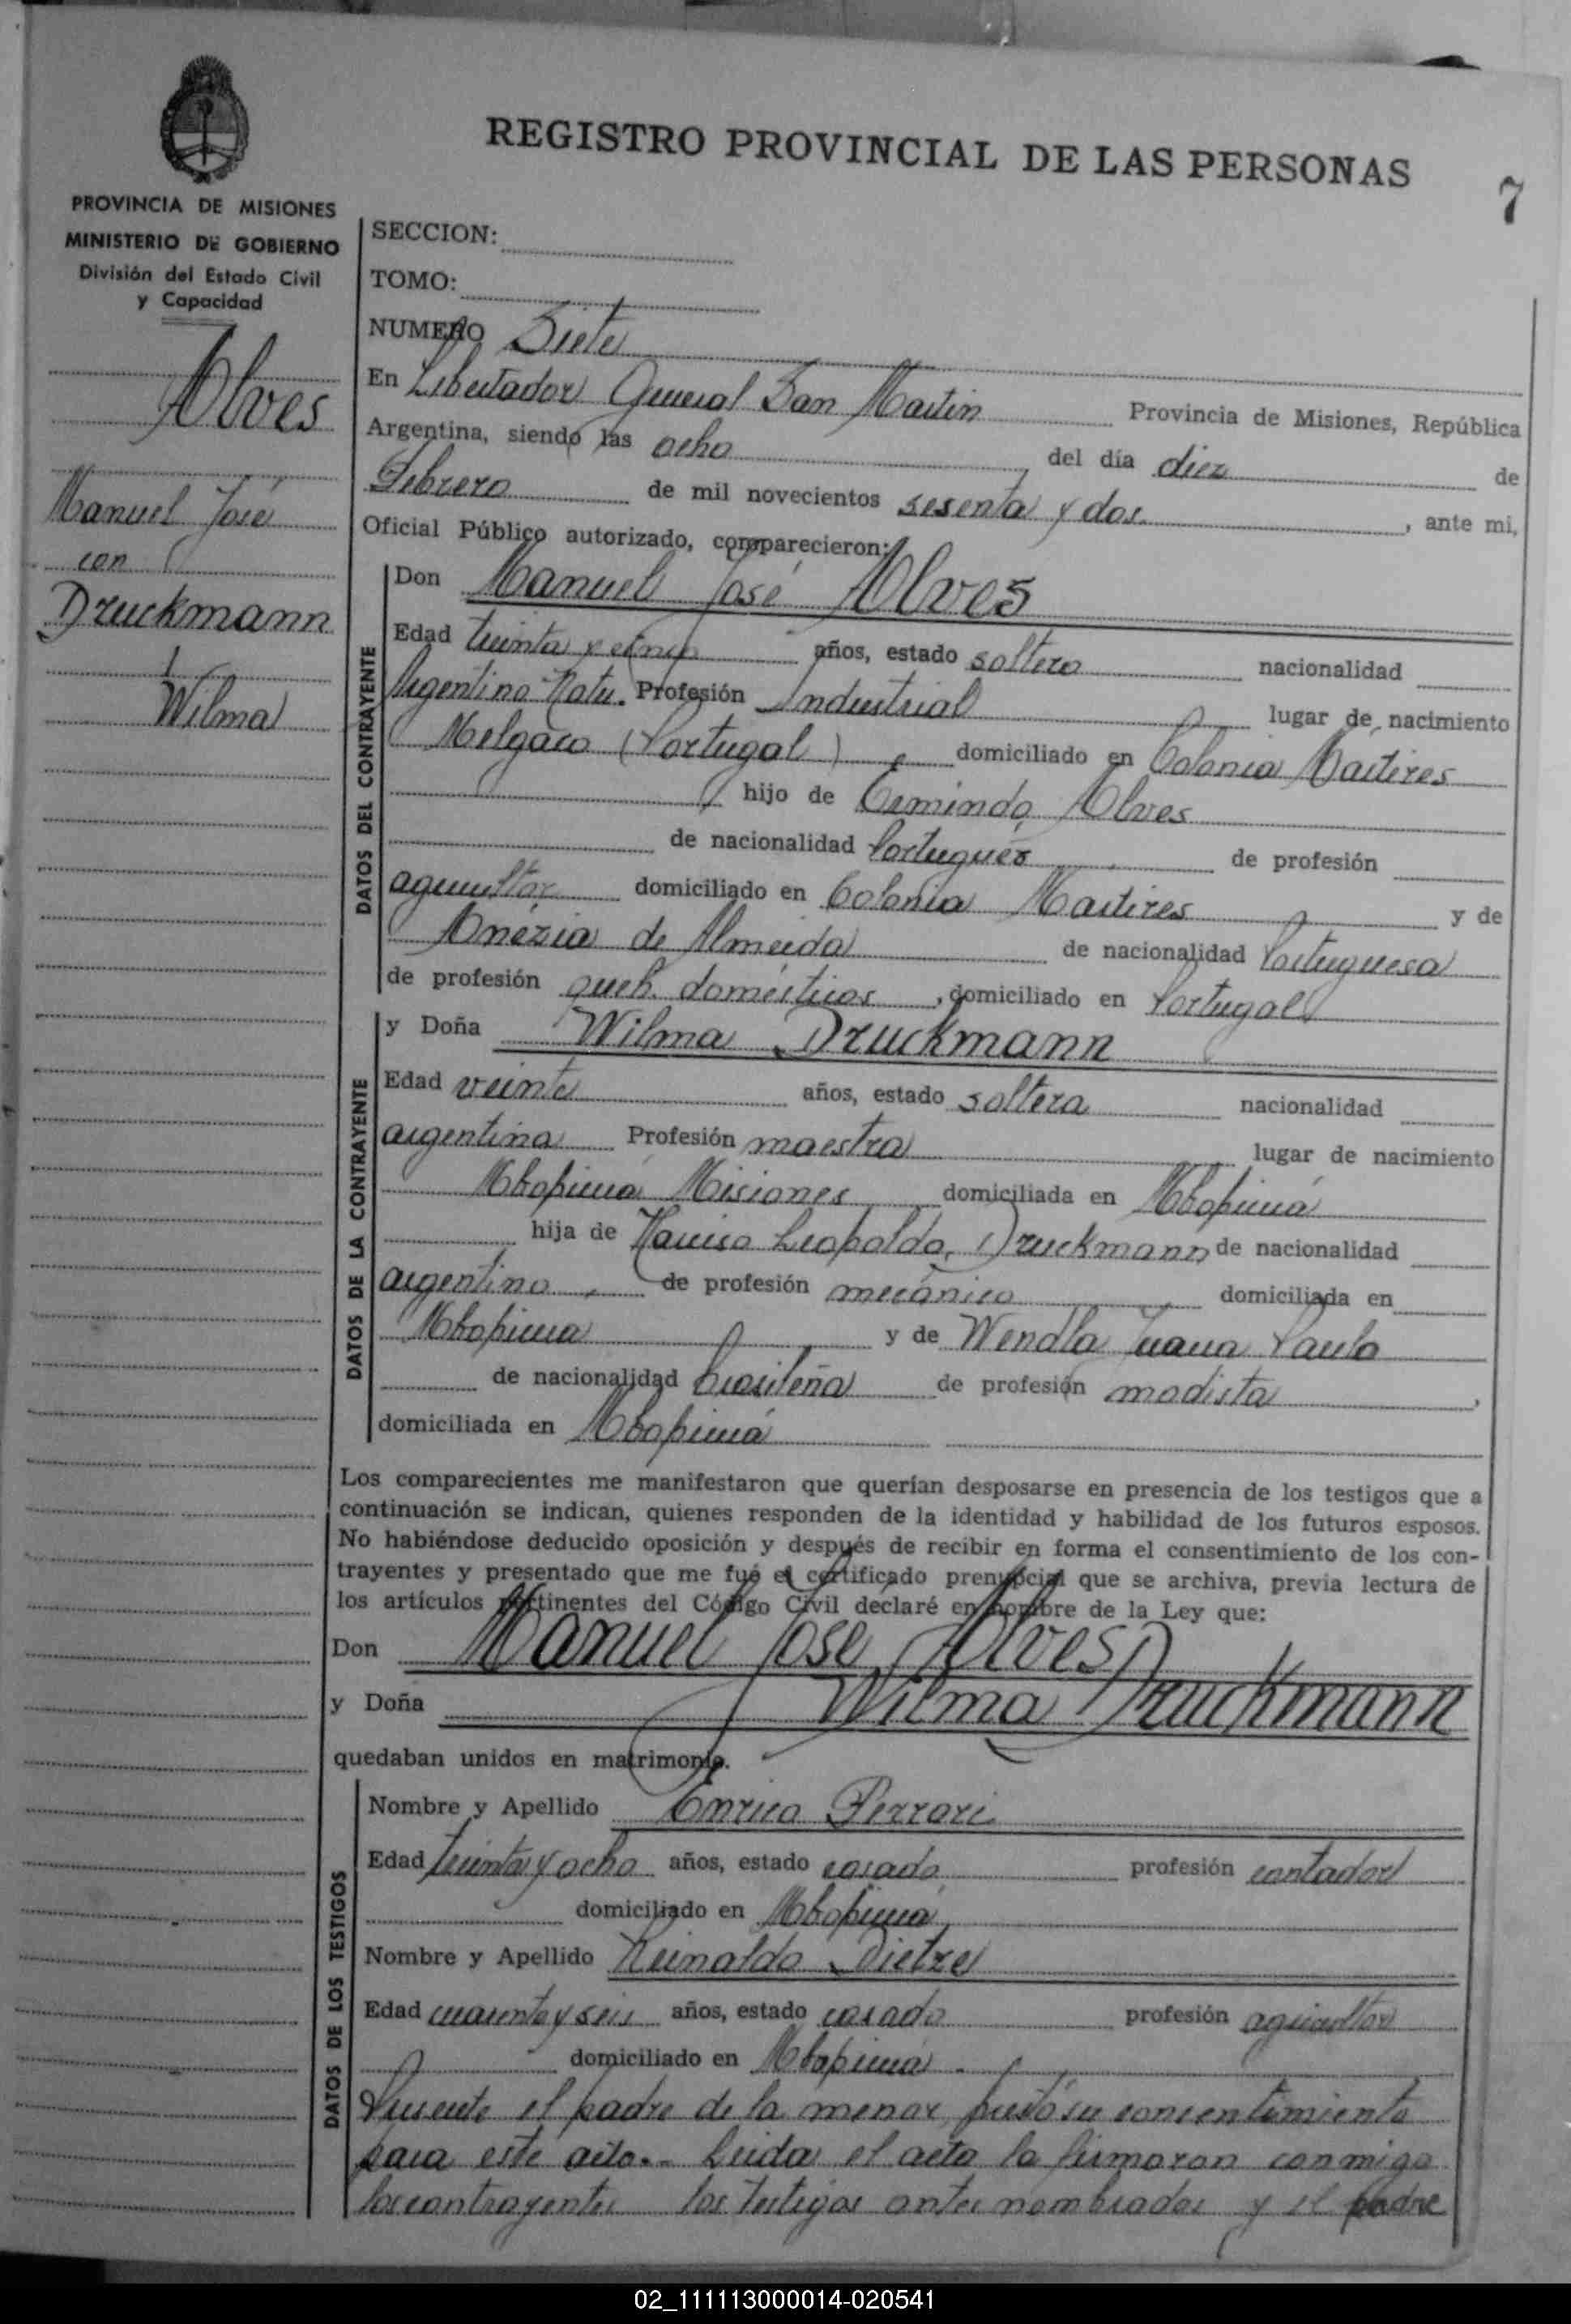 REGISTRO PROVINCIAL DE LAS PERSONAS
7
PROVINCIA DE MISIONES
MINISTERIO DE GOBIERNO
División del Estado Civil
y Capacidad
Alves
Manuel José
con
Druckmann
Wilma
SECCION:
TOMO:
NUMERO Siete
En Libertador General San Martin Provincia de Misiones, República
Argentina, siendo las ocho del día diez de
Febrero de mil novecientos sesenta y dos , ante mi,
Oficial Público autorizado, comparecieron:
DATOS DEL CONTRAYENTE
Don Manuel José Alves
Edad treinta y cinco años, estado soltero nacionalidad
Argentino Natu. Profesión Industrial lugar de nacimiento
Melgaco (Portugal) domiciliado en Colonia Mártires
hijo de Ermindo Alves
de nacionalidad Portugués de profesión
agricultor domiciliado en Colonia Mártires y de
Anézia de Almeida de nacionalidad Portuguesa
de profesión queh. domésticos , domiciliado en Portugal
DATOS DE LA CONTRAYENTE
y Doña Wilma Druckmann
Edad veinte años, estado soltera nacionalidad
argentina Profesión maestra lugar de nacimiento
Mbopicuá Misiones domiciliada en Mbopicuá
hija de Narciso Leopoldo Druckmann de nacionalidad
argentino de profesión mecánico domiciliada en
Mbopicua y de Wendla Juana Paula
de nacionalidad brasileña de profesión modista ,
domiciliada en Mbopicuá
Los comparecientes me manifestaron que querían desposarse en presencia de los testigos que a
continuación se indican, quienes responden de la identidad y habilidad de los futuros esposos.
No habiéndose deducido oposición y después de recibir en forma el consentimiento de los con-
trayentes y presentado que me fué el certificado prenupcial que se archiva, previa lectura de
los artículos pertinentes del Código Civil declaré en nombre de la Ley que:
Don Manuel José Alves
y Doña Wilma Druckmann
quedaban unidos en matrimonio.
DATOS DE LOS TESTIGOS
Nombre y Apellido Enrico Ferrari
Edad treinta y ocho años, estado casado profesión contador
domiciliado en Mbopicuá
Nombre y Apellido Reinaldo Dietze
Edad cuarenta y seis años, estado casado profesión agricultor
domiciliado en Mbopicua
Presente el padre de la menor, prestó su consentimiento
para este acto.- Leida el acta la firmaron conmigo
los contrayentes los testigos antes nombrados y el padre
02_111113000014-020541